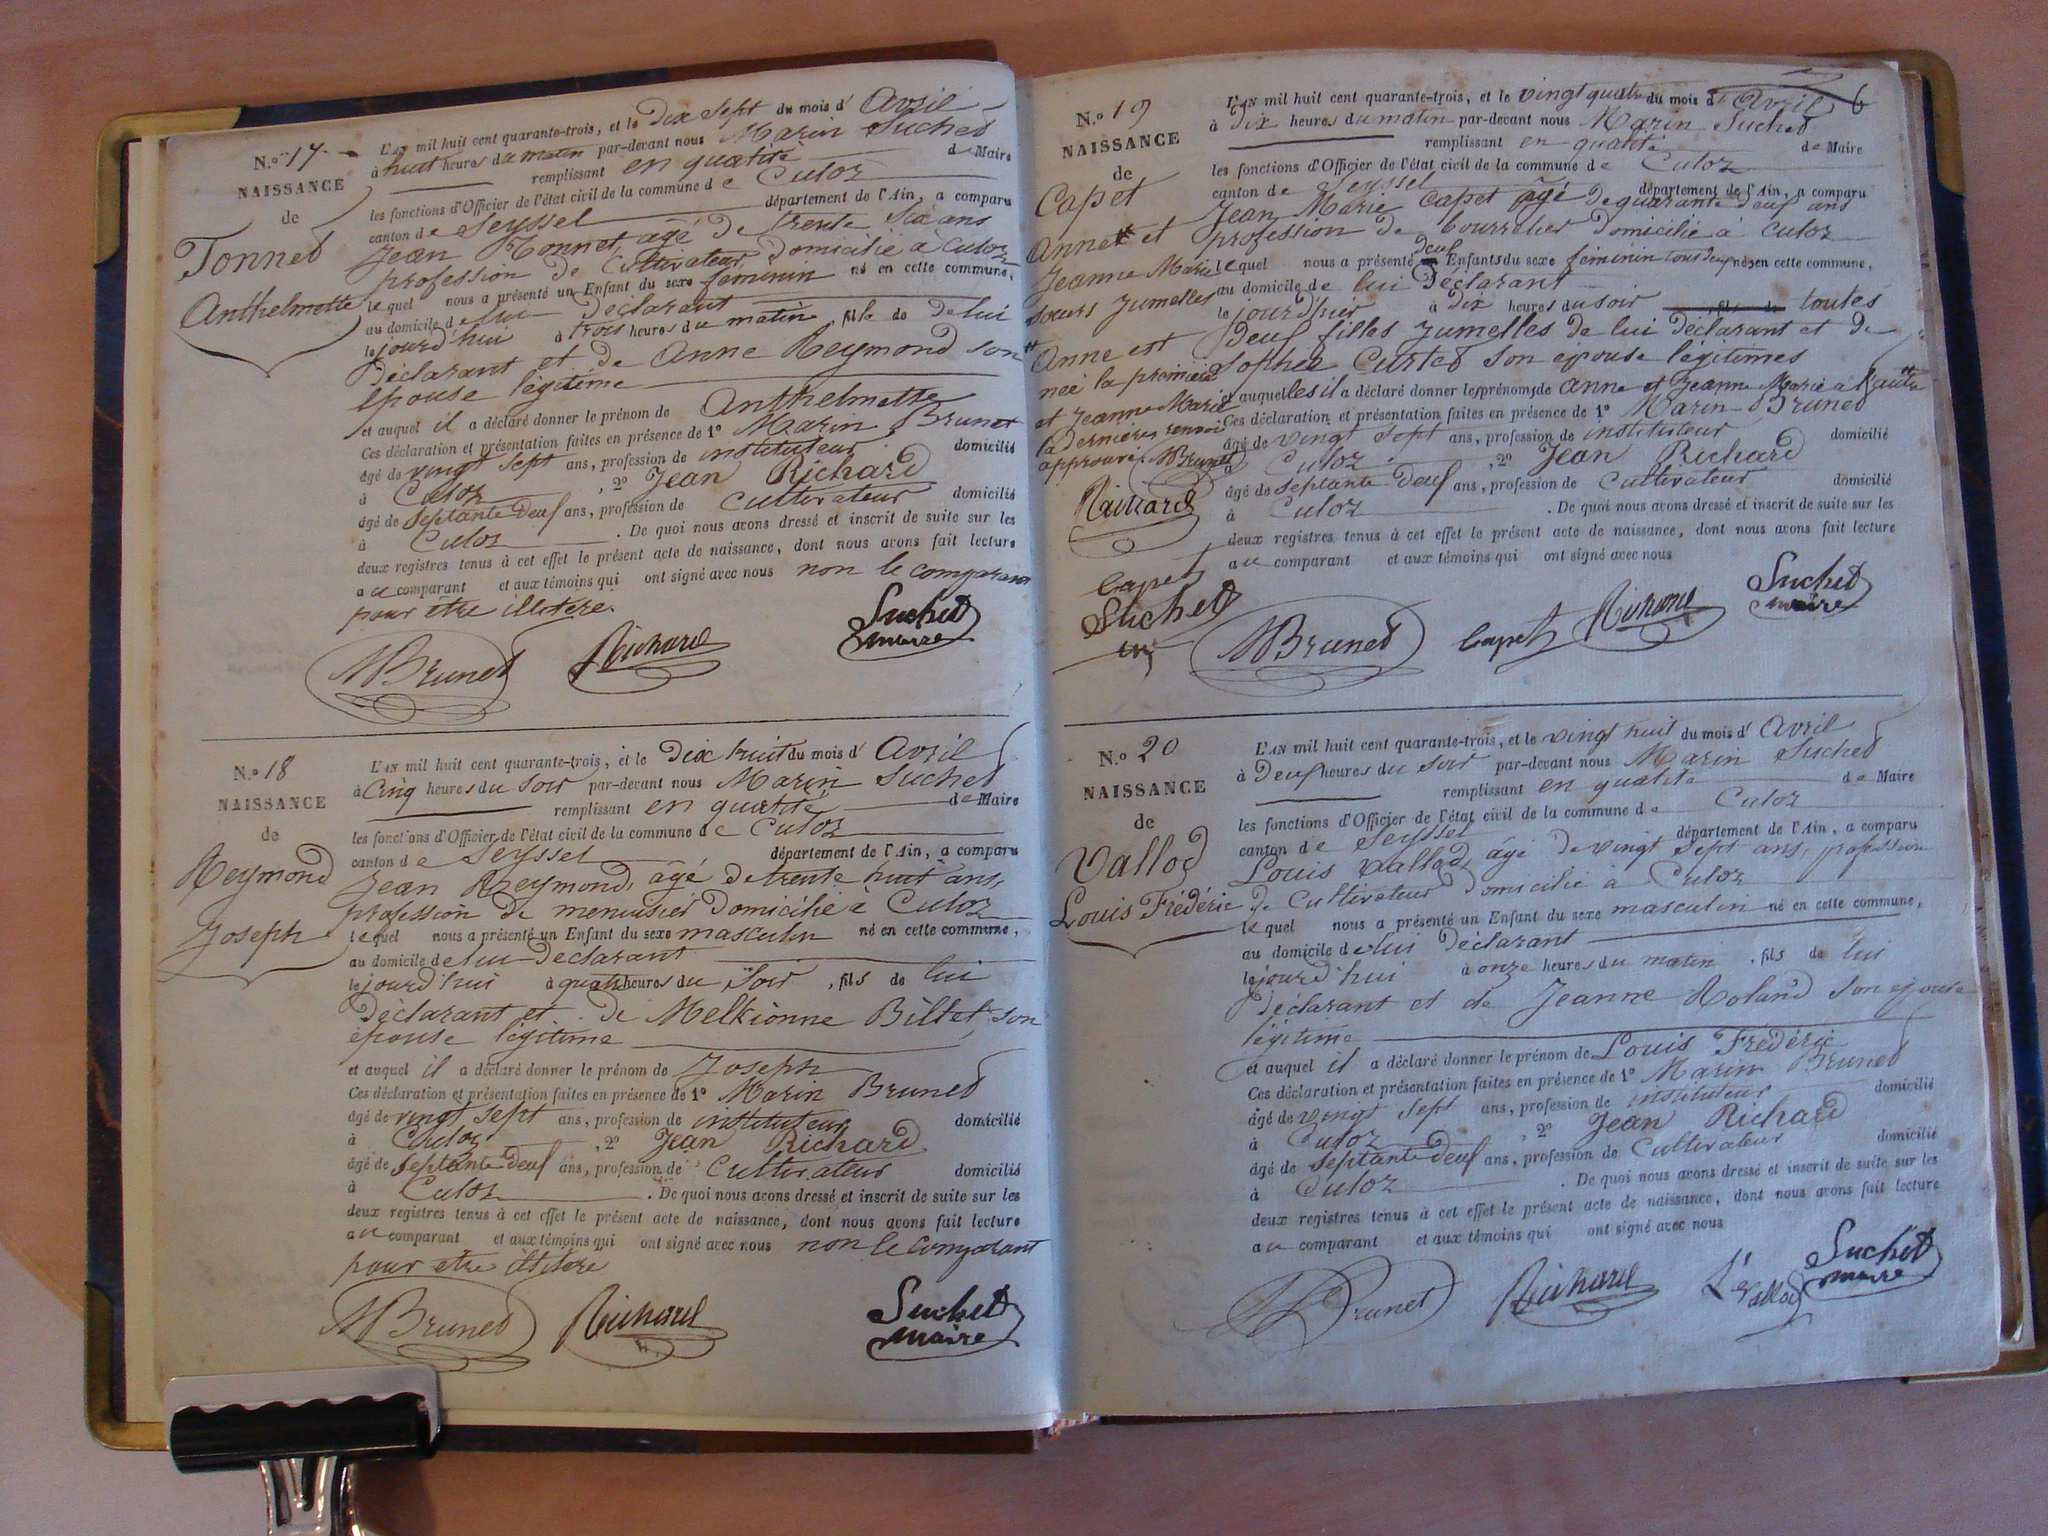 N.° 17.
NAISSANCE
de
Tonned
Anthelmette
L'AN mil huit cent quarante-trois, et le Dix sept du mois d' Avril
à huit heures du matin par-devant nous Marin Suched
remplissant en qualité de Maire
les fonctions d'Officier de l'état civil de la commune de Culoz
canton de Seyssel département de l'Ain, a comparu
Jean Tonnet, agé De trente six ans
profession De Cultivateur, Domicilié à Culoz
lequel nous a présenté un Enfant du sexe feminin né en cette commune,
au domicile de lui Déclarant
le jourd'hui à trois heures du matin, fille de De lui
Déclarant et de Anne Reymond son
épouse légitime
et auquel il a déclaré donner le prénom de Anthelmette
Ces déclaration et présentation faites en présence de 1° Marin Brunet
âgé de vingt sept ans, profession de instituteur domicilié
à Culoz , 2° Jean Richard
âgé de Septante Deuf ans, profession de Cultivateur domicilié
à Culoz . De quoi nous avons dressé et inscrit de suite sur les
deux registres tenus à cet effet le présent acte de naissance, dont nous avons fait lecture
au comparant et aux témoins qui ont signé avec nous non le comparant
pour être illitere.
MBruned Richard Suched
maire
N.° 18
NAISSANCE
de
Reymond
Joseph
L'AN mil huit cent quarante-trois, et le Dix huit du mois d' Avril
à Cinq heures du Soir par-devant nous Marin Suched
remplissant en qualité de Maire
les fonctions d'Officier de l'état civil de la commune de Culoz
canton de Seyssel département de l'Ain, a comparu
Jean Reymond, agé De trente huit ans,
profession De menuisier Domicilié à Culoz
lequel nous a présenté un Enfant du sexe masculin né en cette commune,
au domicile de lui Declarant
le jourd'hui à quatre heures du Soir , fils de lui
Déclarant et De Melkionne Billet, son
épouse légitime
et auquel il a déclaré donner le prénom de Joseph
Ces déclaration et présentation faites en présence de 1° Marin Bruned
âgé de vingt sept ans, profession de instituteur domicilié
à Culoz , 2° Jean Richard
âgé de Septante Deuf ans, profession de Cultivateur domicilié
à Culoz . De quoi nous avons dressé et inscrit de suite sur les
deux registres tenus à cet effet le présent acte de naissance, dont nous avons fait lecture
au comparant et aux témoins qui ont signé avec nous non le comparant
pour etre illitere
MBruned Richard Suched
maire
6
N.° 19
NAISSANCE
de
Capet
Anne # et
Jeanne Marie
soeurs jumelles
# Anne est
née la première
et Jeanne Marie
la Dernière, renvoi
approuvé. MBruned
Richard
Capet
Suched
L'AN mil huit cent quarante-trois, et le vingt quatre du mois d' Avril
à Dix heures du matin par-devant nous Marin Suched
remplissant en qualité de Maire
les fonctions d'Officier de l'état civil de la commune de Culoz
canton de Seyssel département de l'Ain, a comparu
Jean Marie Capet agé De quarante Deuf ans
profession De bourrelier Domicilié à Culoz
lequel nous a présenté Deuf Enfants du sexe féminin tous Deuf nés en cette commune,
au domicile de lui Déclarant
le jour D'hier à Dix heures du soir fils de toutes
Deuf filles jumelles De lui Déclarant et De
Sophie Curted son épouse légitimes
et auquelles il a déclaré donner les prénoms de Anne et Jeanne Marie à l'autre #
Ces déclaration et présentation faites en présence de 1° Marin Bruned
âgé de vingt sept ans, profession de instituteur domicilié
à Culoz , 2° Jean Richard
âgé de Septante Deuf ans, profession de Cultivateur domicilié
à Culoz . De quoi nous avons dressé et inscrit de suite sur les
deux registres tenus à cet effet le présent acte de naissance, dont nous avons fait lecture
au comparant et aux témoins qui ont signé avec nous
MBruned Capet Richard Suched
maire
N.° 20
NAISSANCE
de
Vallod
Louis Frédéric
L'AN mil huit cent quarante-trois, et le vingt huit du mois d' Avril
à Deuf heures du soir par-devant nous Marin Suched
remplissant en qualité de Maire
les fonctions d'Officier de l'état civil de la commune de Culoz
canton de Seyssel département de l'Ain, a comparu
Louis Vallod, agé De vingt sept ans, profession
De Cultivateur Domicilié à Culoz
lequel nous a présenté un Enfant du sexe masculin né en cette commune,
au domicile de lui Déclarant
le jourd'hui à onze heures du matin , fils de lui
Déclarant et de Jeanne Roland son épouse
légitime
et auquel il a déclaré donner le prénom de Louis Frédéric
Ces déclaration et présentation faites en présence de 1° Marin Bruned
âgé de vingt sept ans, profession de instituteur domicilié
à Culoz , 2° Jean Richard
âgé de Septante Deuf ans, profession de Cultivateur domicilié
à Culoz . De quoi nous avons dressé et inscrit de suite sur les
deux registres tenus à cet effet le présent acte de naissance, dont nous avons fait lecture
au comparant et aux témoins qui ont signé avec nous
MBrunet Richard Ls Vallod Suched
maire